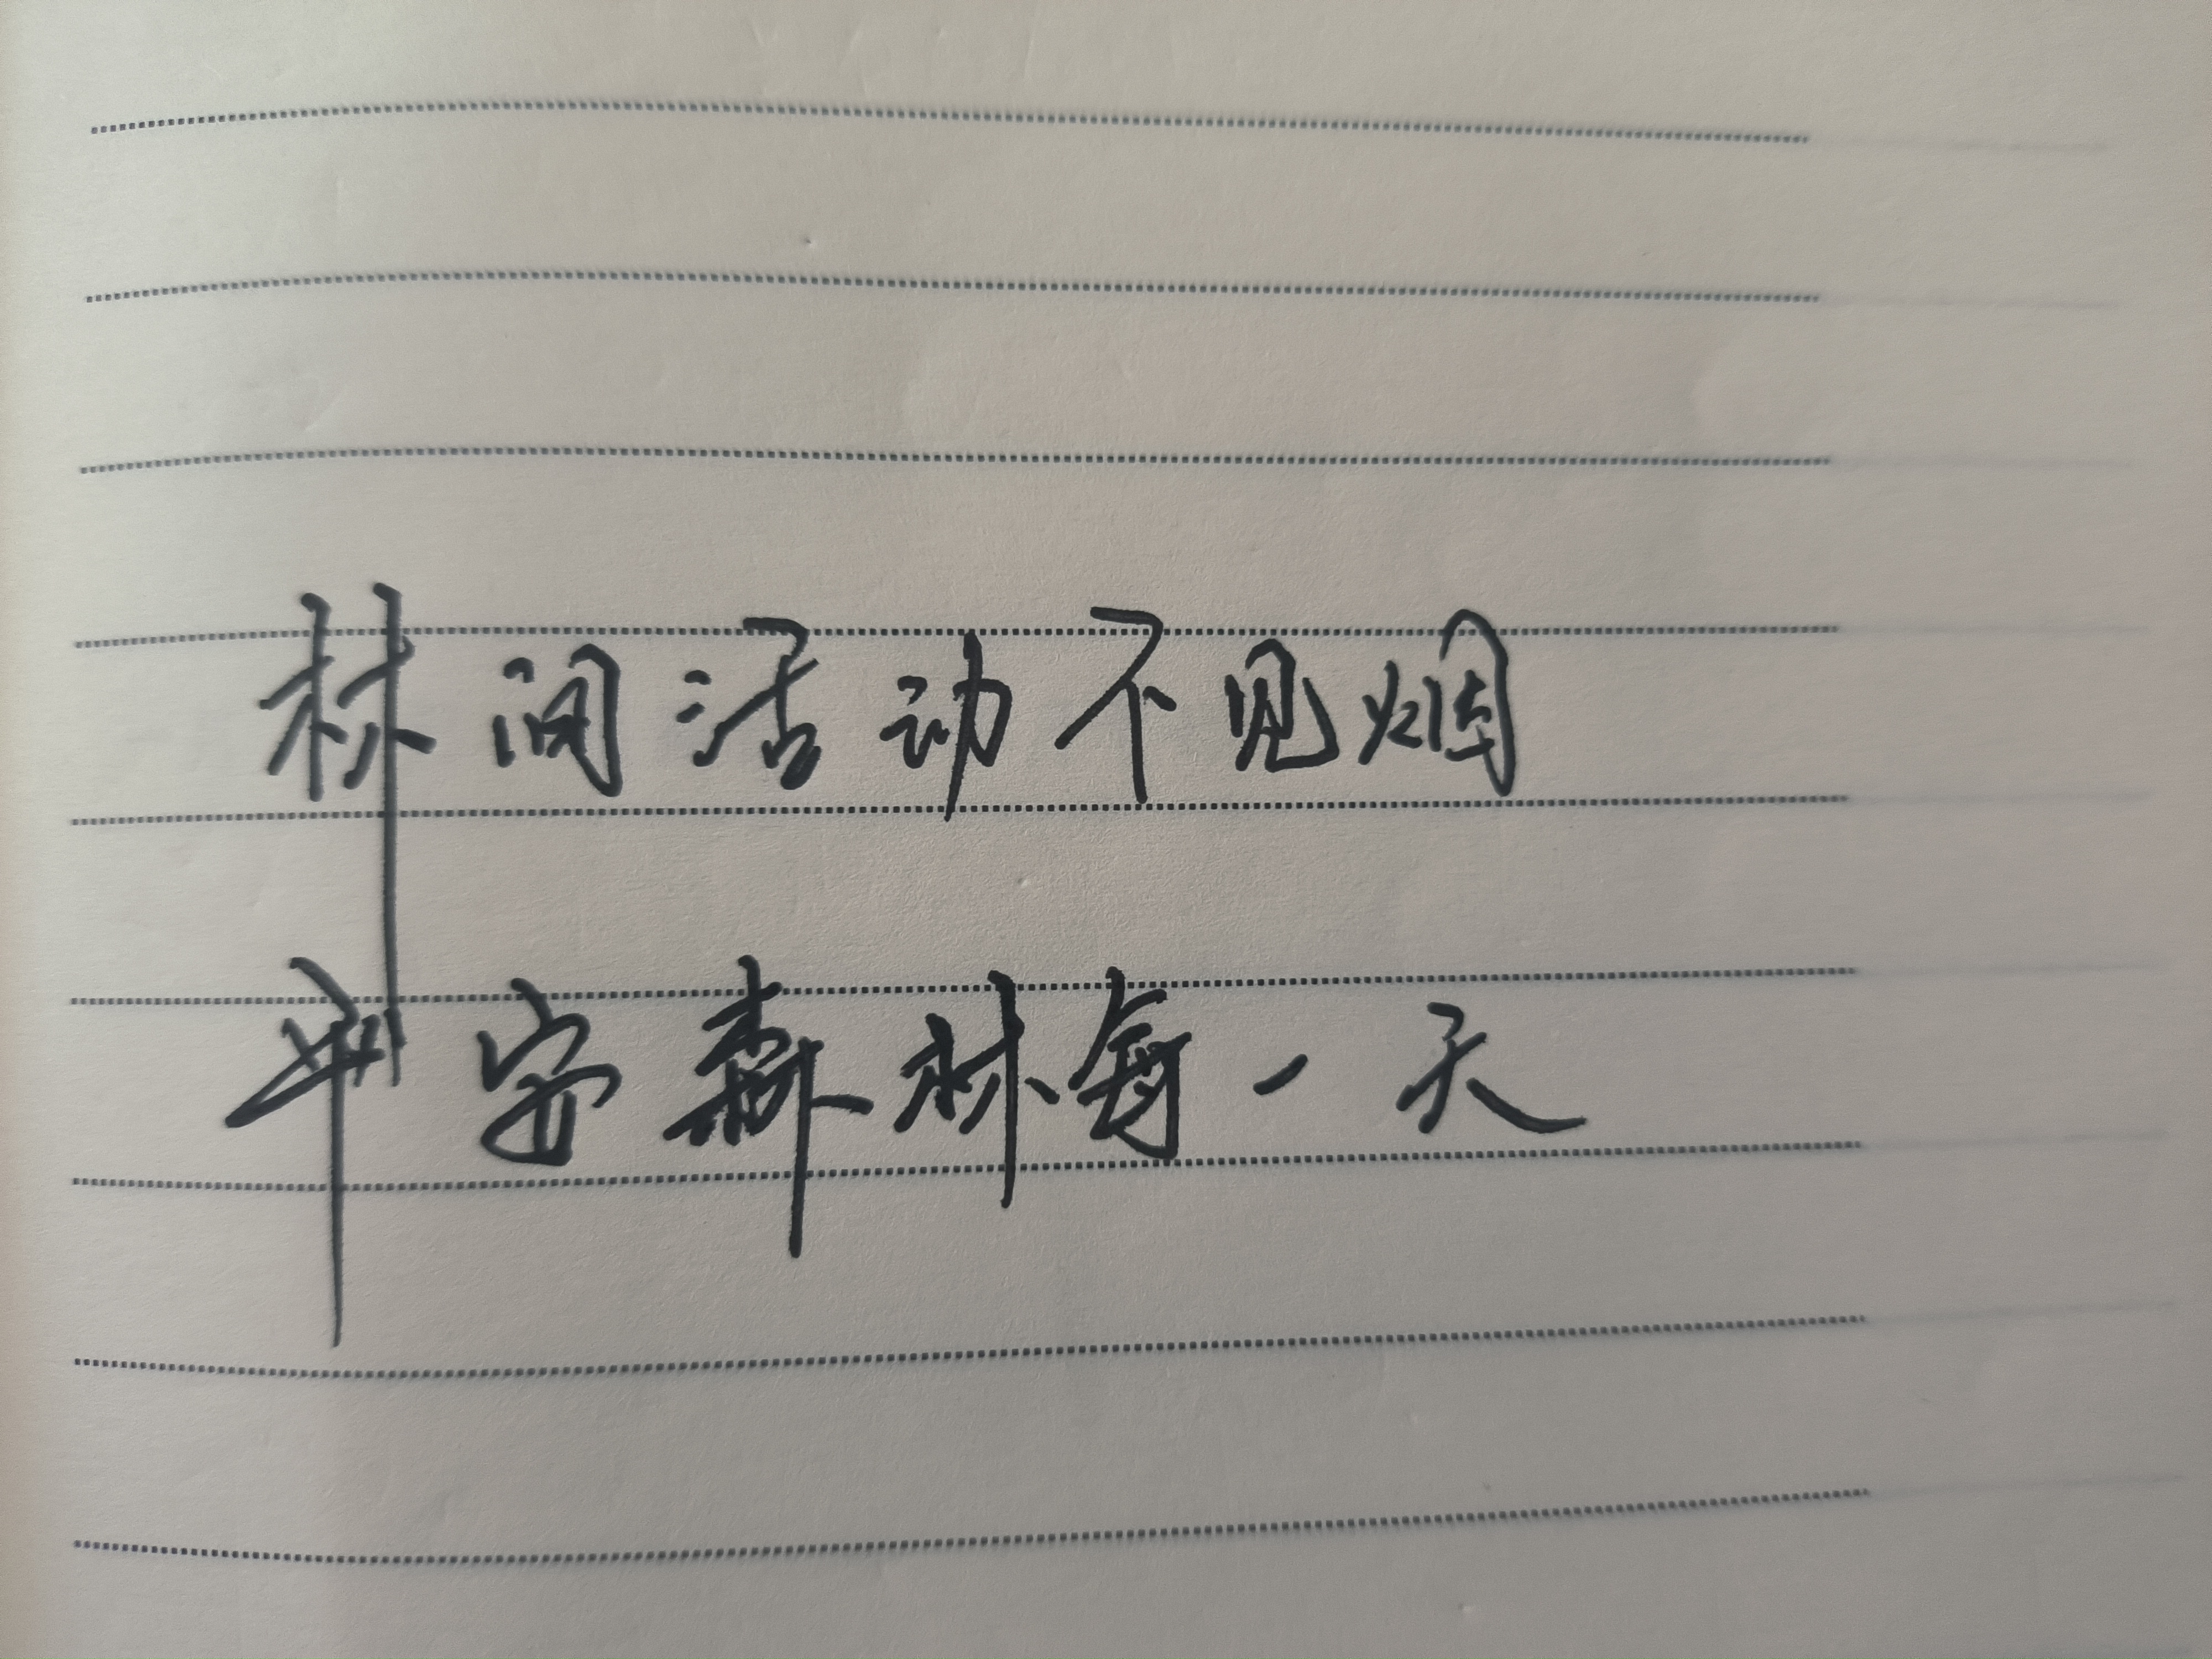 林间活动不见烟
平安森林每一天